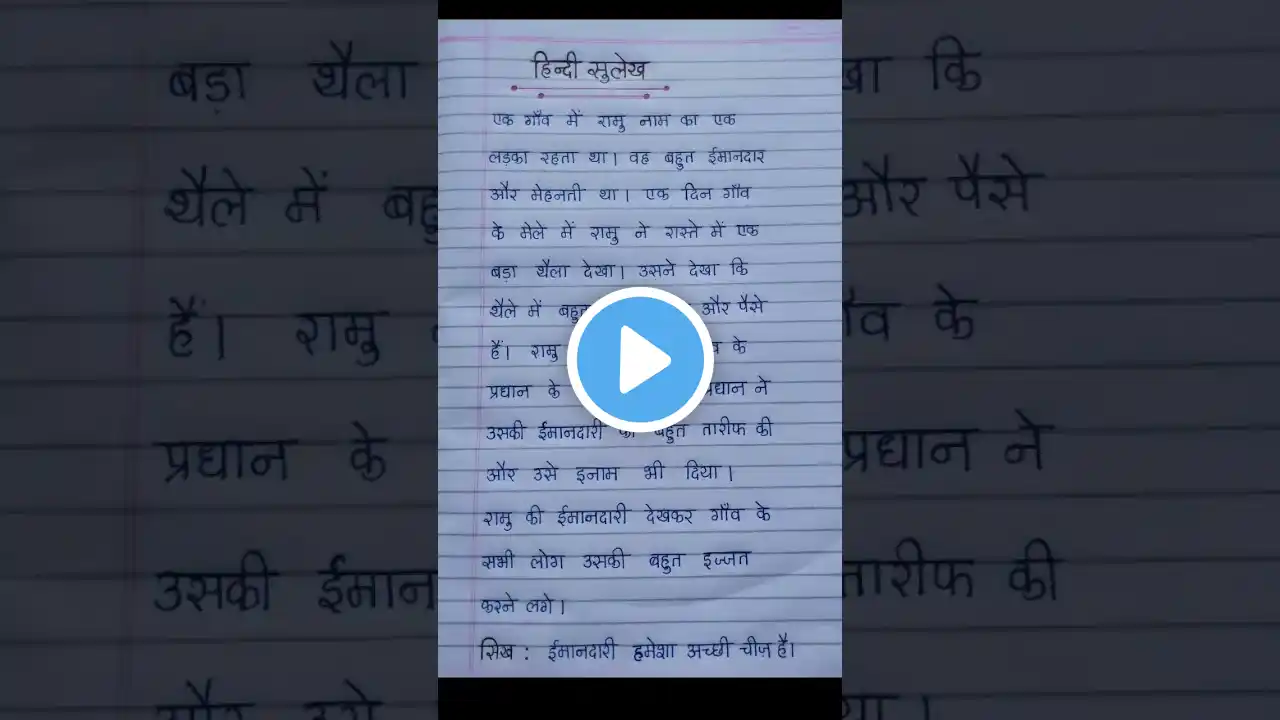 हिन्दी सुलेख
एक गाँव में रामु नाम का एक
लड़का रहता था। वह बहुत ईमानदार
और मेहनती था। एक दिन गाँव
के मेले में रामु ने रास्ते में एक
बड़ा थैला देखा। उसने देखा कि
थैले में बहुत और पैसे
हैं। रामु के
प्रधान के प्रधान ने
उसकी ईमानदारी की बहुत तारीफ की
और उसे इनाम भी दिया।
रामु की ईमानदारी देखकर गाँव के
सभी लोग उसकी बहुत इज्जत
करने लगे।
सिख : ईमानदारी हमेशा अच्छी चीज है।